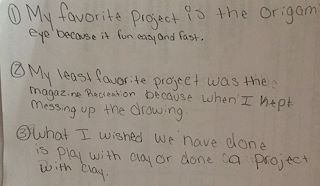 ① My favorite project is the Origam
eye because it fun easy and fast.
② My least favorite project was the
magazine Recreation because when I kept
messing up the drawing.
③ What I wished we have done
is play with clay or done a project
with clay.